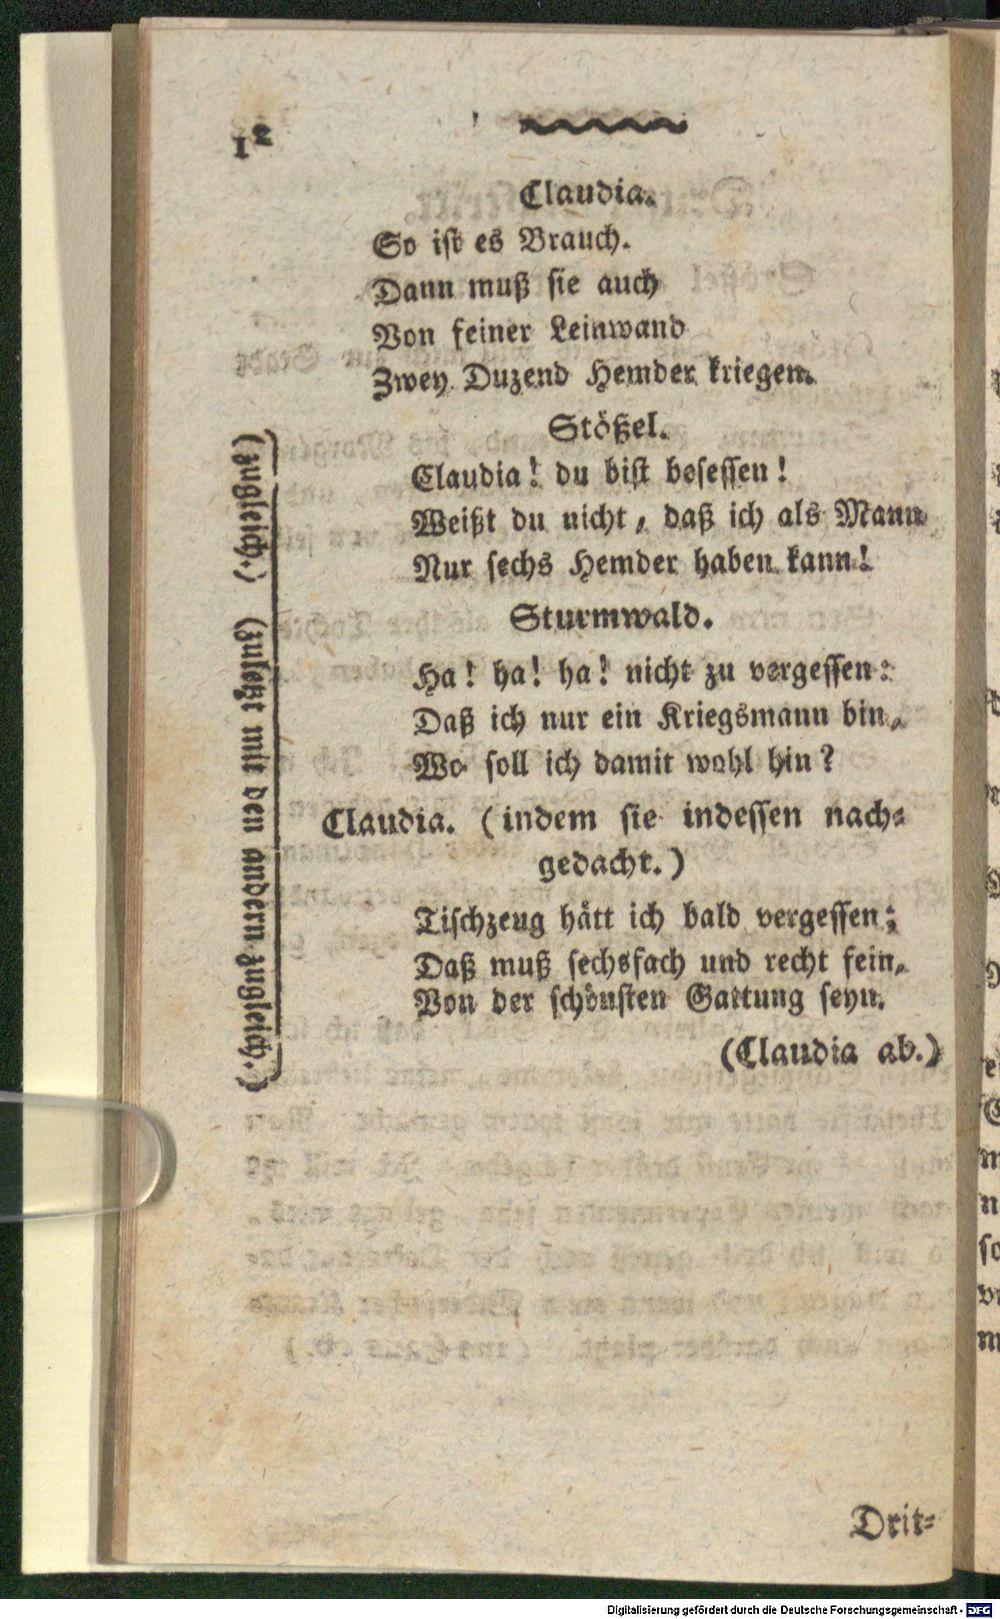 12
Claudia.
So ist es Brauch.
Dann muß sie auch
Von feiner Leinwand
Zwey Duzend Hemder kriegen.
Stößel.
Claudia! du bist besessen!
Weißt du nicht, daß ich als Mann
Nur sechs Hemder haben kann!
Sturmwald.
Ha! ha! ha! nicht zu vergessen:
Daß ich nur ein Kriegsmann bin,
Wo soll ich damit wohl hin?
Claudia. (indem sie indessen nach-
gedacht.)
Tischzeug hätt ich bald vergessen;
Daß muß sechsfach und recht fein,
Von der schönsten Gattung seyn.
(Claudia ab.)
(zugleich.) (zulezt mit den andern zugleich.)
Drit-
Digitalisierung gefördert durch die Deutsche Forschungsgemeinschaft - DFG